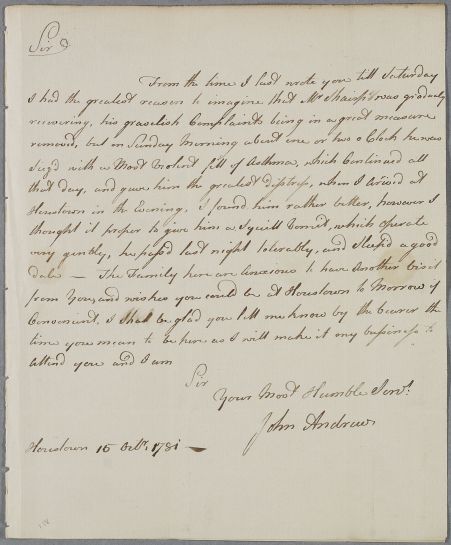 Sir
From the time I last wrote you till Saturday
I had the greatest reason to imagine that Mr Shairp was gradualy
recovering, his gravelish Complaints being in a great measure
removed, but on Sunday Morning about one or two o Clock he was
Seiz'd with a Most Violent fitt of Asthma, which Continued all
that day, and gave him the greatest distress, when I arived at
Houstown in the Evening, I found him rather better, however I
thought it proper to give him a Vomit, which operate
very gently, he pass'd last night tolerably, and Sleep'd a good
dale — The Family here are Anxious to have Another Visit
from You, and wishes you could be at Houstown to Morrow if
Convenient, I Shall be glad you lett me know by the bearer the
time you mean to be here as I will make it my bussiness to
attend you and I am
Sir
Your Most Humble Servt.
John Andrew
Houstown 16 1781 —